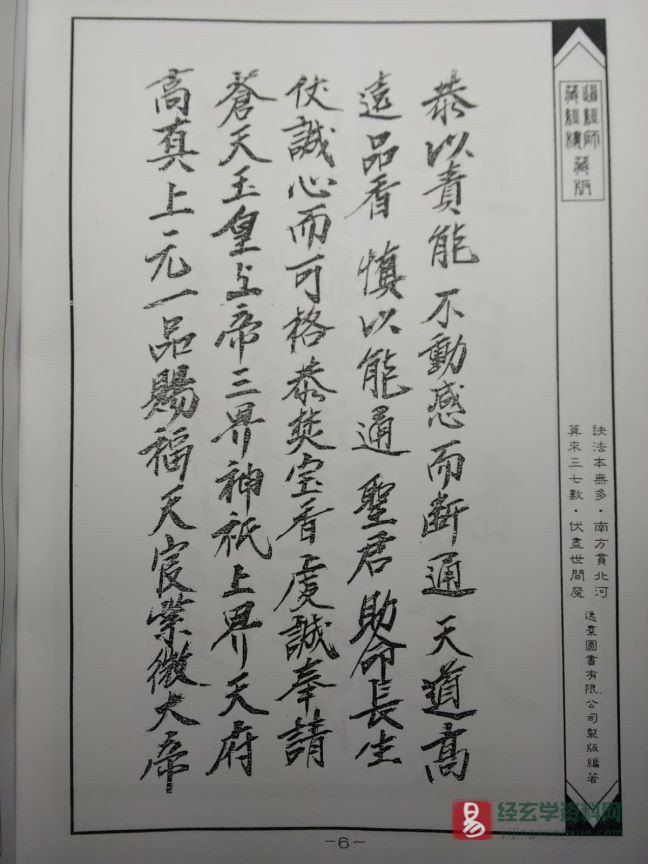 道經師
藏經樓
藏版
訣法本無多·南方貫北河
算來三七數·伏盡世間魔
逸羣圖書有限公司製版編著
恭以責能 不動感而斷通 天道高
遠品香 慎以能通 聖君助命長生
仗誠心而可格恭焚宝香虔誠奉請
蒼天玉皇上帝三界神祇上界天府
高真上元一品賜福天宸紫微大帝
-6-
易 经玄学资料网